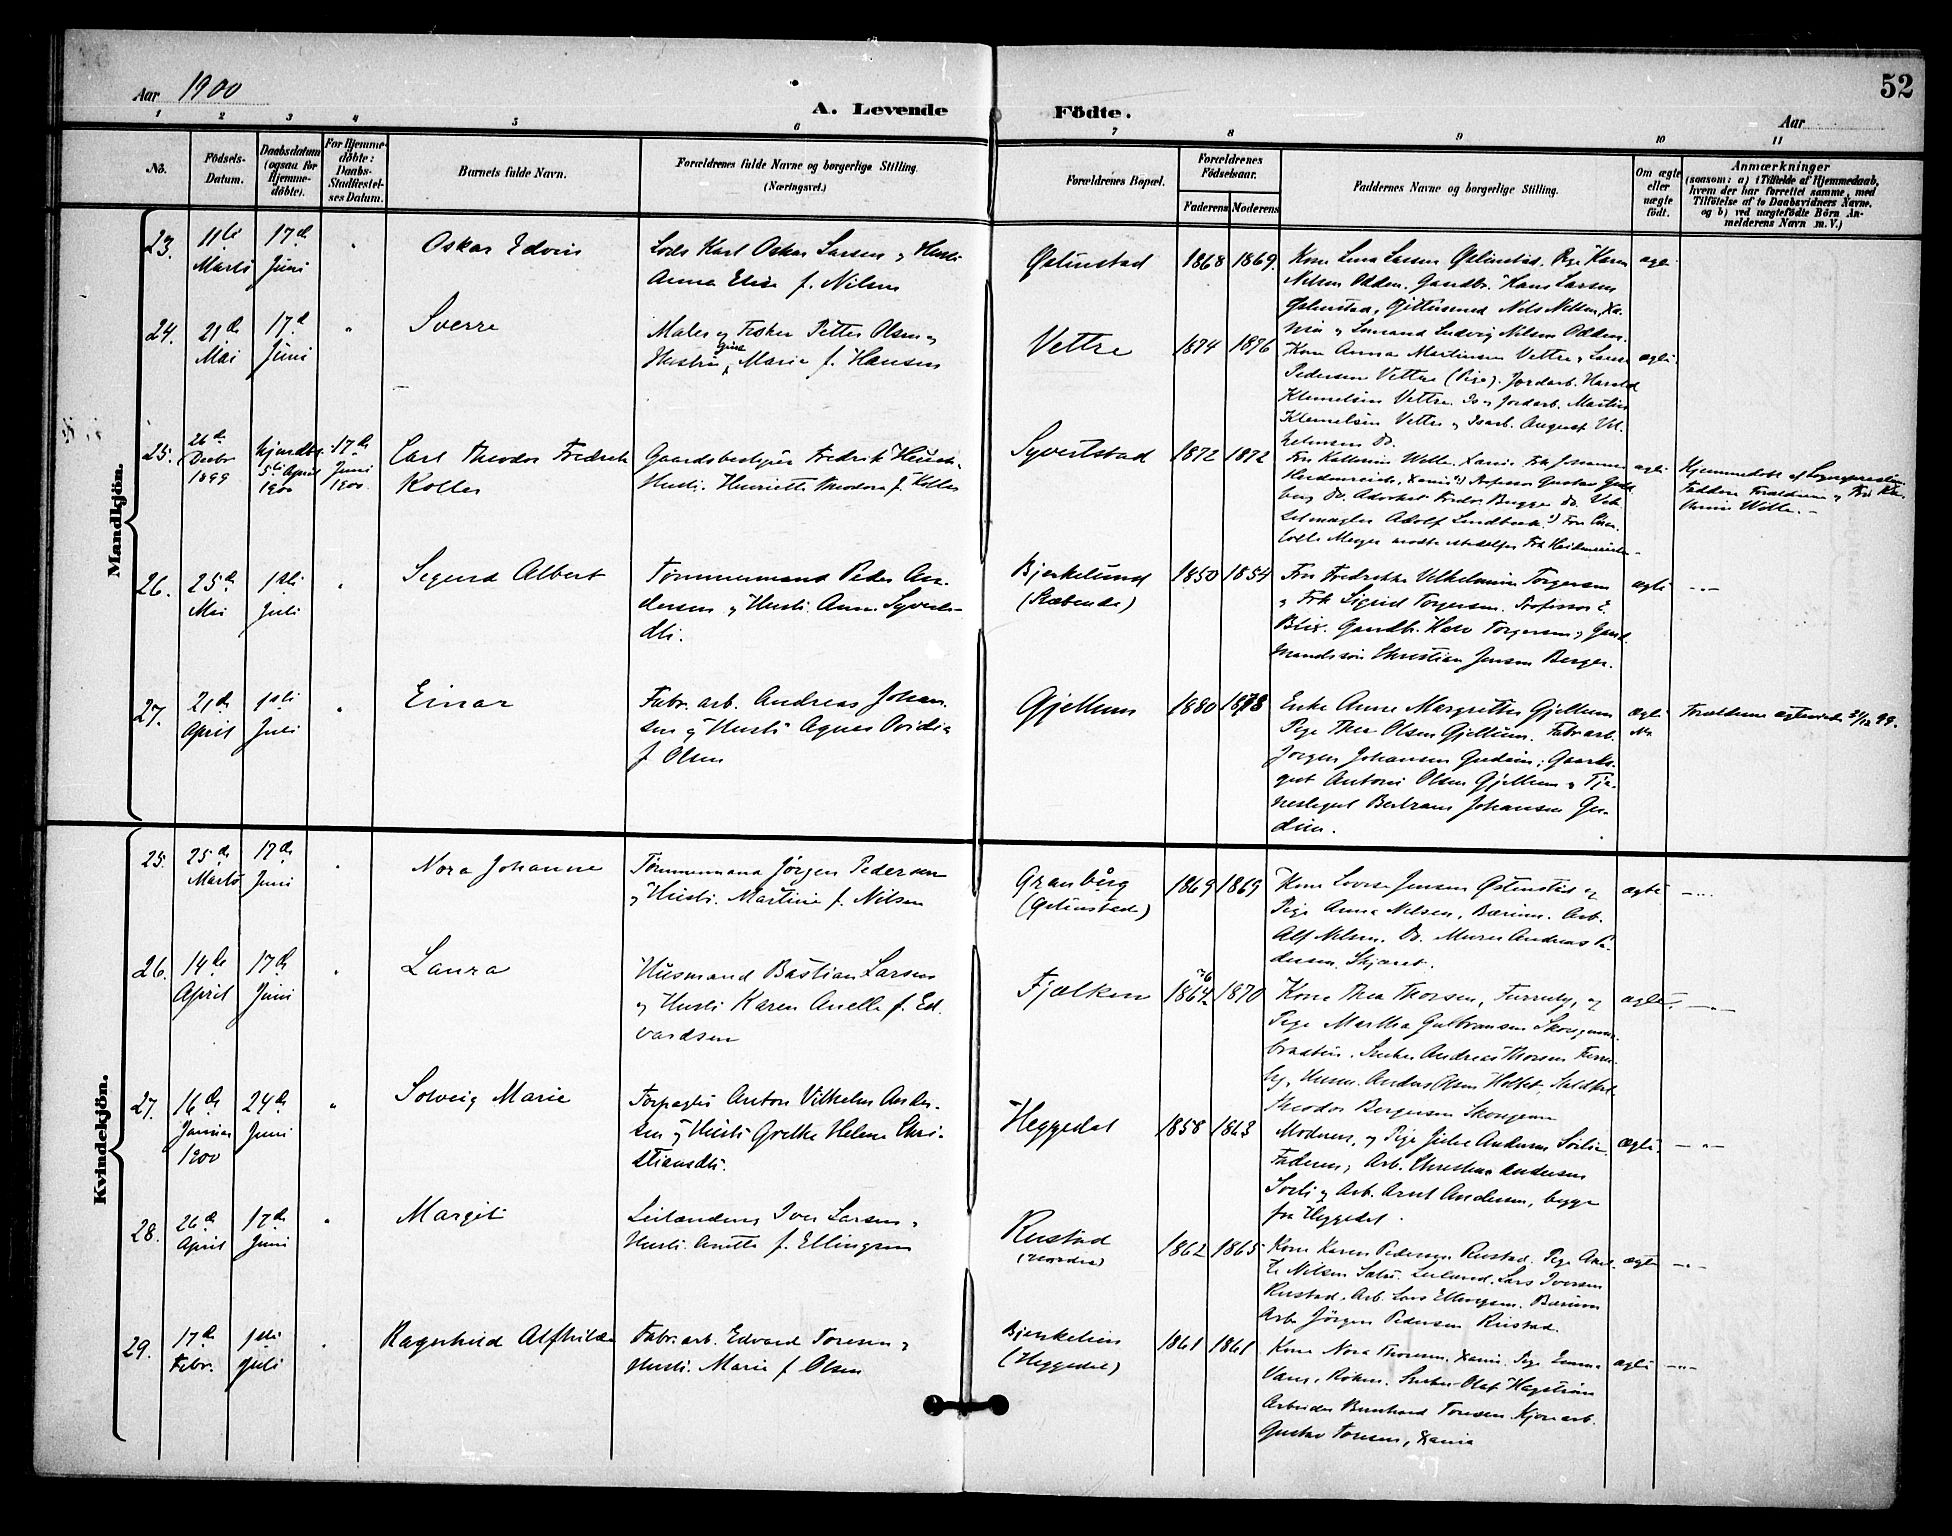 52
Aar 1900
A. Levende Födte.
Aar
1 2 3 4 5 6 7 8 9 10 11
No.
Födsels-
Datum.
Daabsdatum
(ogsaa for
Hjemme-
döbte).
For Hjemme-
döbte:
Daabs-
Stadfæstel-
ses Datum.
Barnets fulde Navn.
Forældrenes fulde Navne og borgerlige Stilling.
(Næringsvei.)
Forældrenes Bopæl.
Forældrenes
Födselsaar.
Faderens Moderens
Faddernes Navne og borgerlige Stilling.
Om ægte
eller
uægte
födt.
Anmærkninger
(saasom: a) i Tilfælde af Hjemmedaab,
hvem der har forrettet samme, med
Tilföielse af to Daabsvidners Navne.
og b) ved uægtefödte Börn An-
melderens Navn m. V.)
Mandkjön.
23.
11te
Marts
17de
Juni
Oskar Edvin
Lods Karl Oskar Larsen og Hustr.
Anna Elise f. Nilsen
Østenstad
1868 1869.
Kone Lina Larsen Østenstad. Pige Karen
Nelsen Odden. Gaardbr. Hans Larsen
Østenstad, Nels Nelsen, Xa-
nia og Ludvig Nilsen Odden.
24.
21de
Mai
17de
Juni
Sverre
Maler og Fisker Petter Olsen og
Hustru Gine Marie f. Hansen
Vettre
1874 1876
Kone Anna Martinsen Vettre og
Pedersen Vettre (Pige). Jordarb. Harald
Klemetsen Vettre. Jordarb. Martin
Klemetsen Vettre og Isarb. August Vil-
helmsen Do.
ægte
25.
26de
Decbr
1899
Hjemdbt.
5te April
1900
17de
Juni
1900.
Carl Theodor Fredrik
Koller
Gaardsbestyrer Fredrik
Hustr. Henriette Theodora f. Koller
Syvertstad
1872 1872
Frk Kathrine Welle. Xania. Frk Johanne
Heidenreich, Xania. Professor Gustav
Do. Advokat Fredr. Bugge Do. Vek-
selmægler Adolf Lindboek.
ægte
Hjemmedøbt af Sogneprsten
Faddere Forældrene og Frk Ka-
thrine Welle.
26.
25de
Mai
1ste
Juli
Sigurd Albert
Tømmermand Peder An-
dersen og Hustr. Anne Syverts-
dtr.
Bjerkelund
(Ræbende)
1850 1854
Fru Fredrikke Vilhelmine Torgersen
og Frk Sigrid Torgersen. Professor E.
Blix. Gaardbr. Halv Torgersen og Gaard-
mandssøn Christian Jensen Berger.
ægte
27.
21de
April
1ste
Juli
Einar
Fabr. arb. Andreas Johan-
sen og Hustr. Agnes Ovidia
f Olsen
Gjellum
1880 1878
Enke Anne Margrethe Gjellum
Pige Thea Olsen Gjellum. Fabr arb.
Jørgen Johansen Gudim; Gaards-
gut Antoni Olsen Gjellum og Tje-
nestegut Bertram Johansen Gu-
dim.
ægte
Forældrene ægteviede 21/12 99.
Kvindekjön.
25.
25de
Marts
17de
Juni
Nora Johanne
Tømmermand Jørgen Pedersen
og Hustr. Martine f. Nilsen
Granberg
(Østenstad)
1869 1869
Kone Lovise Jensen Østenstad og
Pige Anna Nelsen, Bærum. Arb.
Alf Nelsen. Do. Murer Andreas Pe-
dersen. Skjæret.
ægte
26.
14de
April
17de
Juni
Laura
Husmand Bastian Larsen
og Hustr Karen Anelle f. Ed-
vardsen
Fjælken
1864 1870
Kone Thea Thorsen, Furruby, og
Pige Martha Gulbransen
braaten. Sneker Andreas Thorsen Furru-
by, Husm. Anders Olsen
Theodor Bergersen
ægte.
27.
16de
Januar
1900
24de
Juni
Solveig Marie
Forpagter Anton Vilhelm Ander-
sen og Hustr Grethe Helene Chri-
stiansdtr.
Heggedal
1858 1863
Moderen, og Pige Andersen Solli
Faderen, Arb. Christian Andersen
Solli og Arb. Arnt Andersen, begge
fra Heggedal.
ægte.
28.
26de
April
17de
Juni
Margit
Leilænding Iver Larsen og
Hustr. Anette f. Ellingsen
Rustad
1862 1865
Kone Karen Pedersen Rustad. Pige
Nilsen Leilænd. Lars Iversen
Rustad. Arb. Lars Ellingsen. Bærum
Arb. Jørgen Pedersen Rustad.
ægte
29.
17de
Febr.
1ste
Juli
Ragnhild Alfhilda
Fabr. arb. Edvard Toresen og
Hustr. Marie f Olsen
(Heggedal)
1861 1861
Kone Nora Thoresen. Xania. Pige Emma
Vang, Røken. Snekker Olaf Hagstrøm
Arbeider Bernhard Toresen. Kjørearb.
Gustav Toresen, Xania
ægte